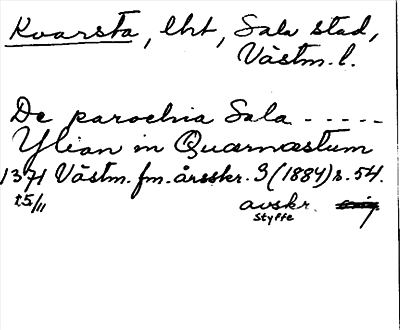 Kvarsta, lht, Sala stad,
Västm. l.
De parochia Sala - - - - -
Ylian in Quærnæstum
1371 Västm. fm. årsskr. 3 (1884) s. 54.
t5/11 avskr.
Styffe